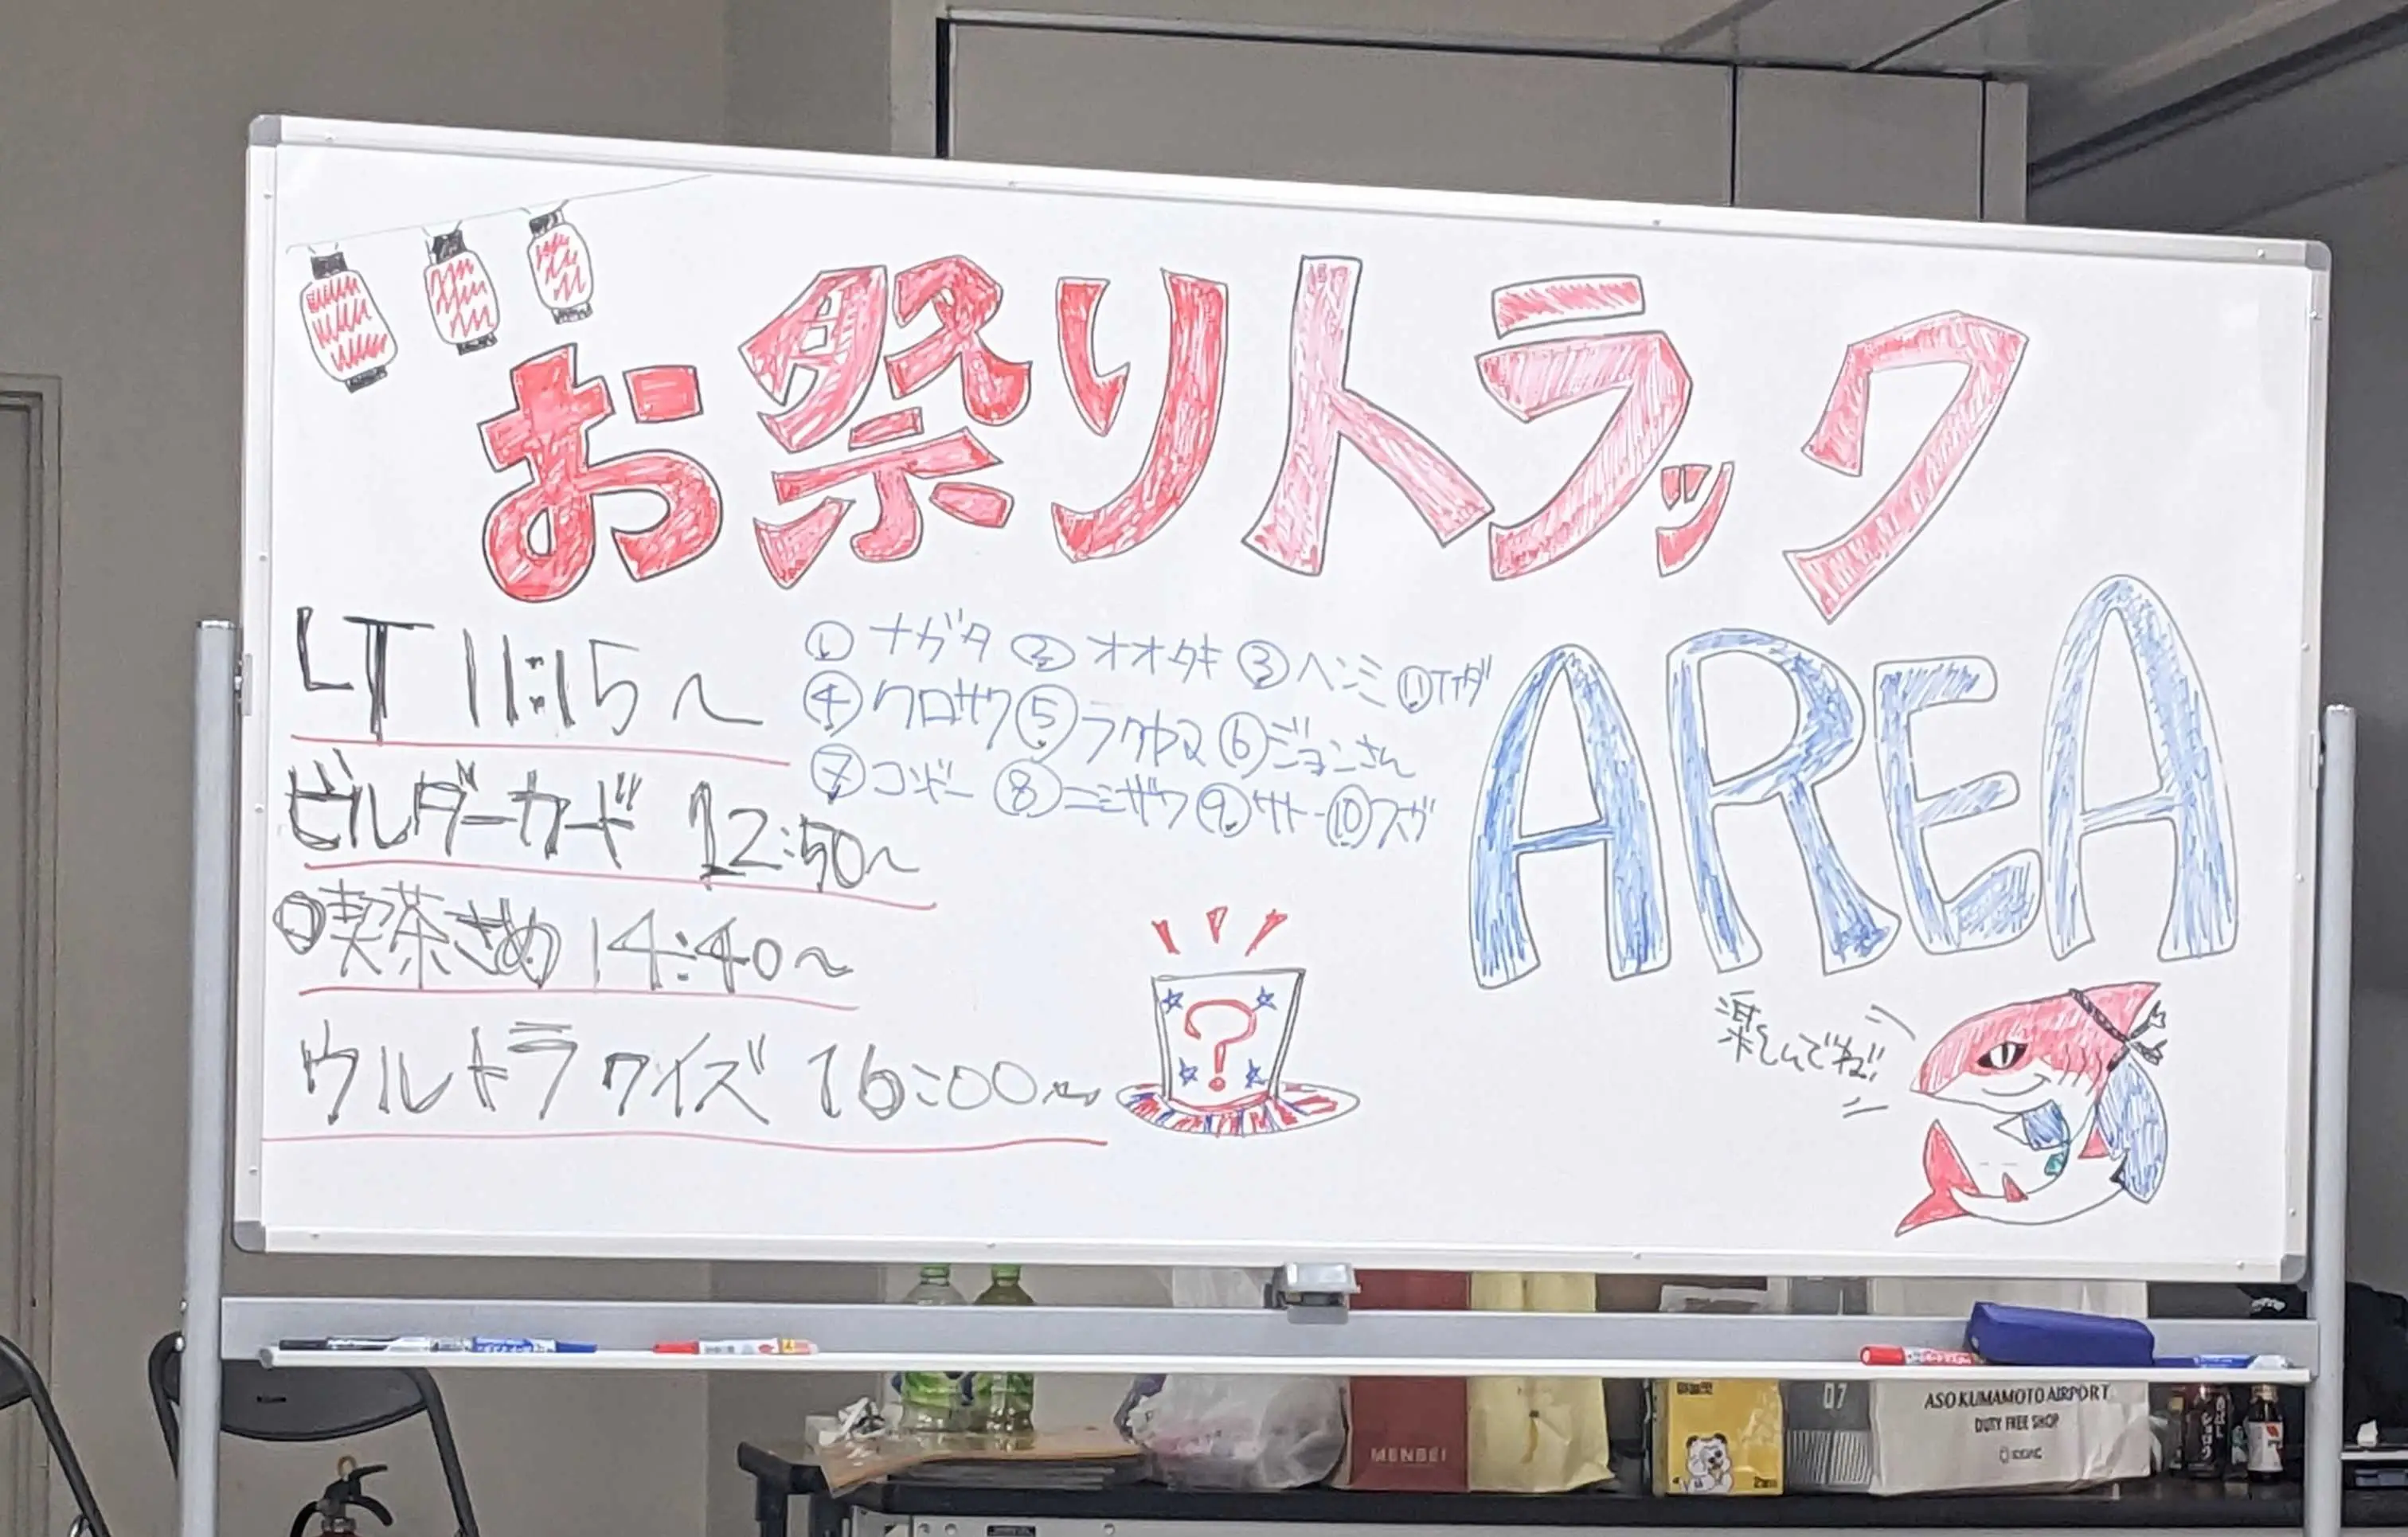 お祭りトラック
AREA
LT 11:15〜
① ナガタ ② オオタキ ③ ヘンミ ⑪
④ クロサワ ⑤ ラクヤマ ⑥ ジョンさん
⑦ コバー ⑧ ニシザワ ⑨ サトー ⑩ スガ
ビルダーカード 12:50〜
喫茶ざめ 14:40〜
ウルトラクイズ 16:00〜
?
楽しんでね!!
MENBEI
07
ASO KUMAMOTO AIRPORT
DUTY FREE SHOP